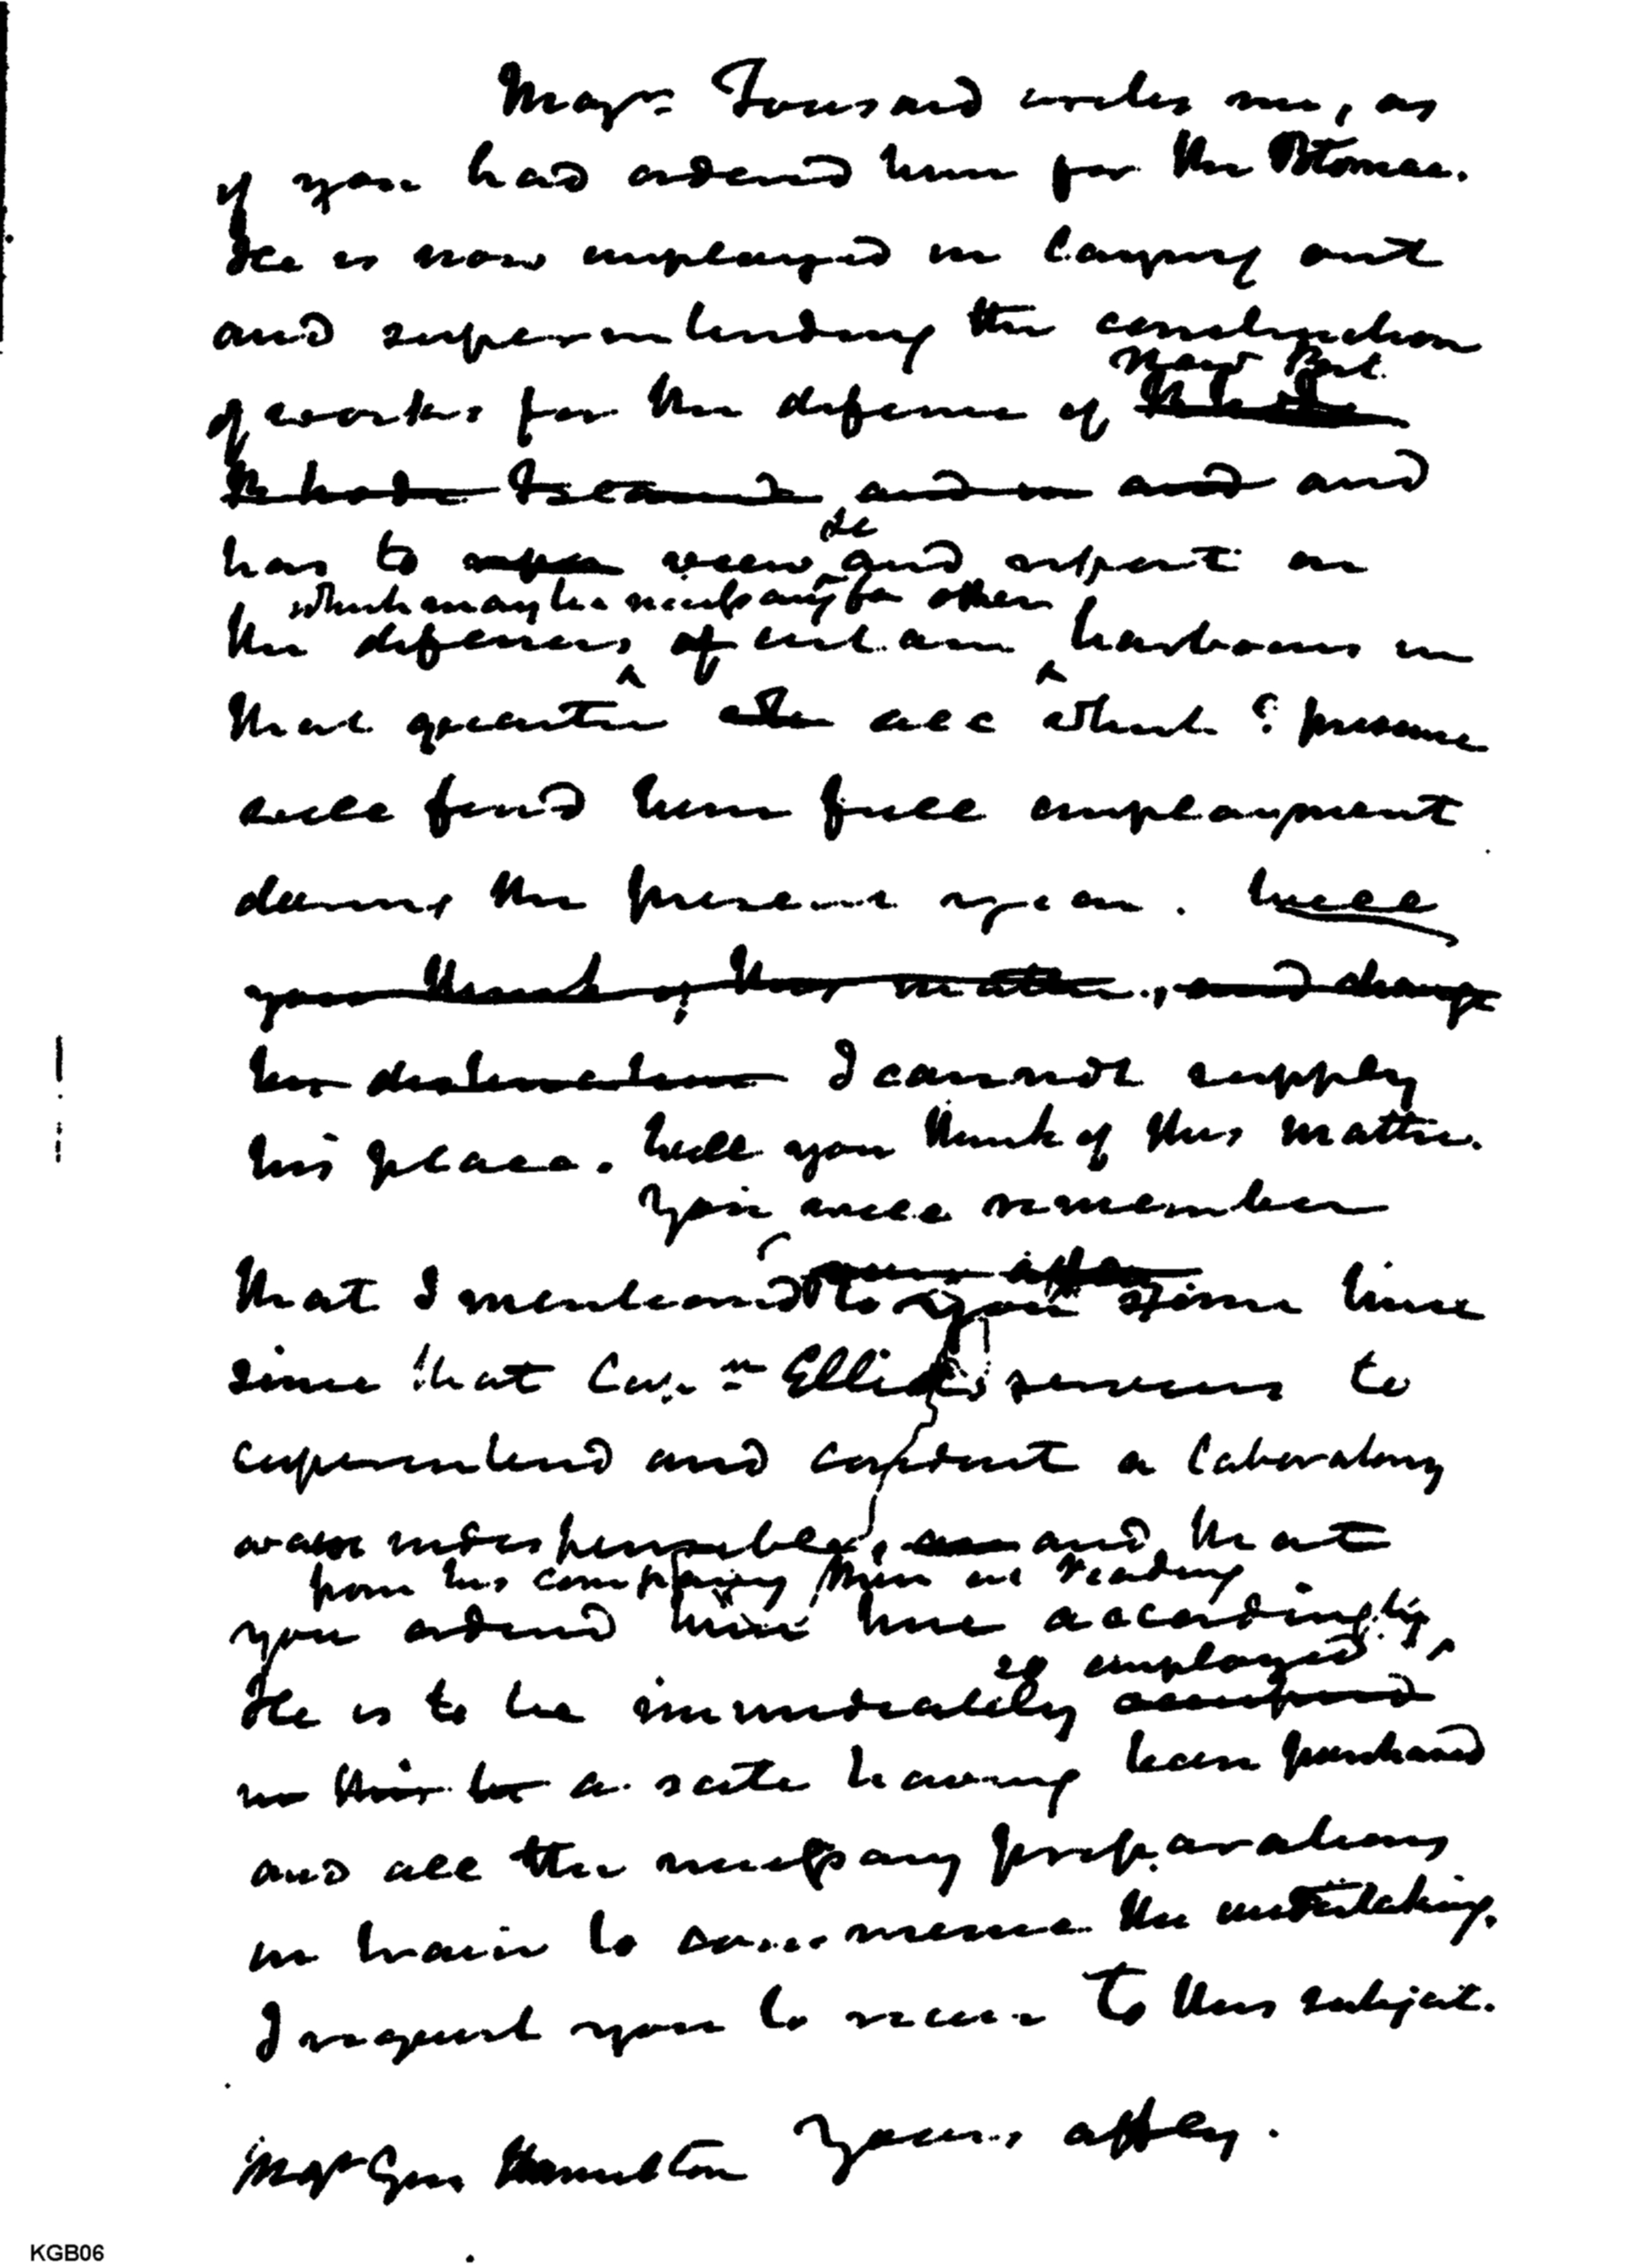 Majr. Tousard writes me, as
if you had ordered him for the Potomac.
He is now employed in laying out
and superintending the construction
New Port
of works for the defence of Rhode
Rhode Island and in and and
&c
has to view and report on
which may be necessary for other
the defences of certain harbours in
that quarter all which I presume
will find him full employment
during the present year. Will
you think of this matter, and change
his destination I cannot supply
his place. Will you think of this matter.
You will remember
that I mentioned to you some time
since that Capn Elliots services to
superintend and conduct a laboratory
was indispensible, and that
from his company then at Reading
you ordered him here accordingly,
so employed
He is to be immediately
in this a scite having been purchased
and all the necessary preparations
in train to commence the undertaking.
I request you to recur to this subject.
Yours affly.
Majr Gen Hamilton
KGB06